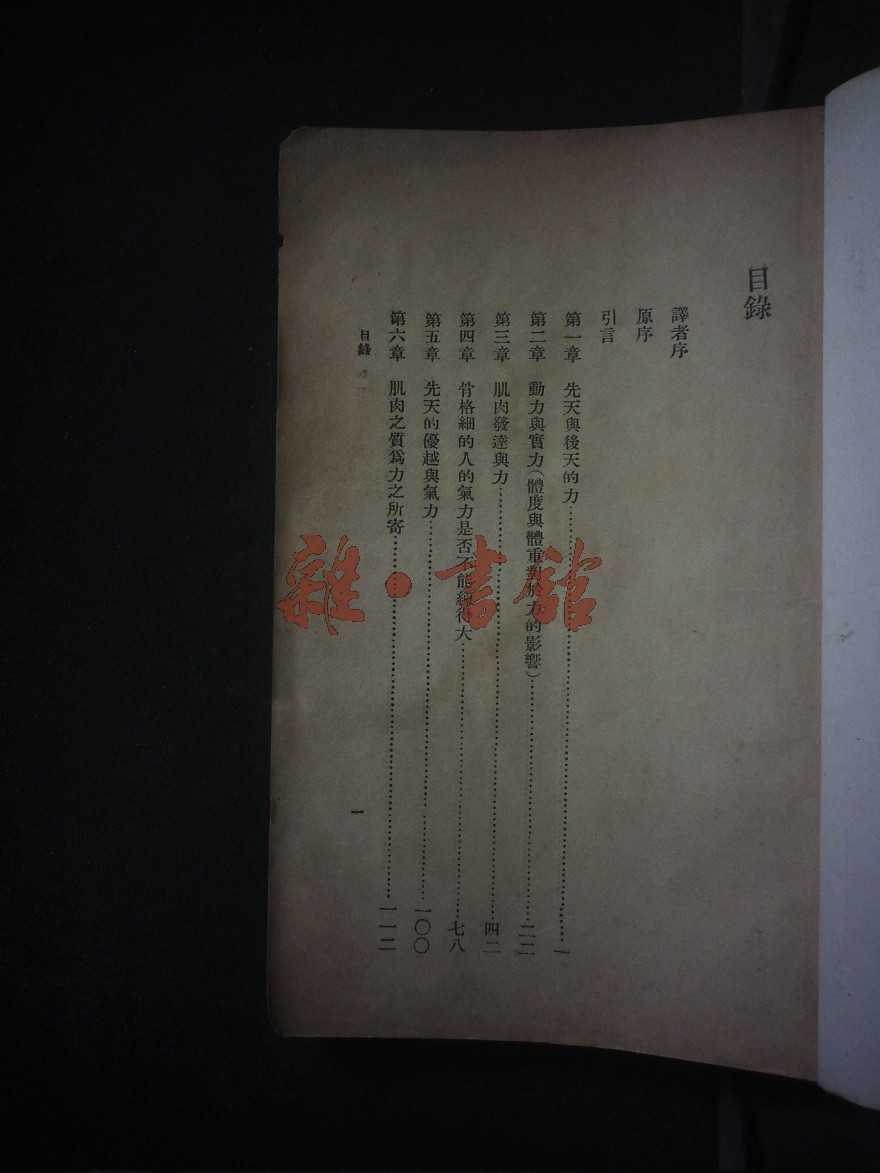 目錄
譯者序
原序
引言
第一章 先天與後天的力……一
第二章 動力與實力(體度與體重對於力的影響)……二二
第三章 肌肉發達與力……四二
第四章 骨格細的人的氣力是否不能練得大……七八
第五章 先天的優越與氣力……一〇〇
第六章 肌肉之質爲力之所寄……一一二
目錄
一
雜·書館